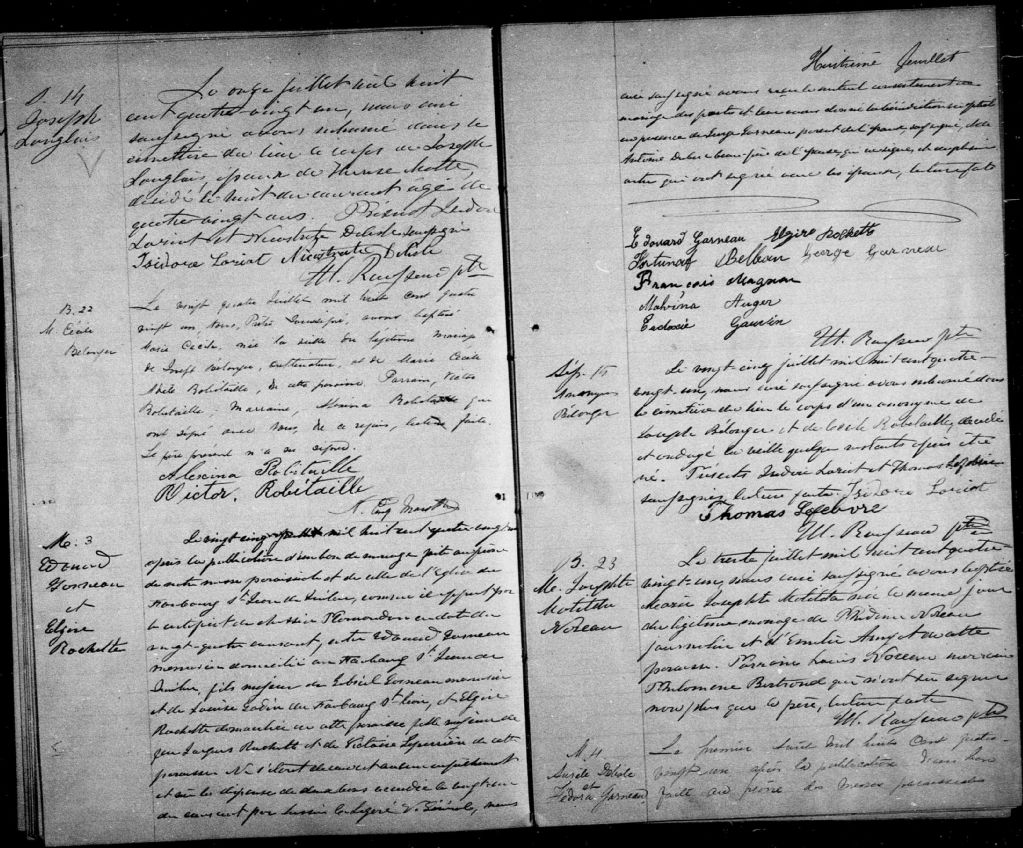 S. 14
Joseph
Langlais
Le onze juillet mil huit
cent quatre-vingt un, nous curé
soussigné avons inhumé dans le
cimetière du lieu le corps de Joseph
Langlais, époux de Therese Matte,
décédé le huit du courant agé de
quatre vingt ans. Présent Isidore
Loriot et Nicostrate Delisle soussignés
Isidore Loriot Nicostrate Delisle
B. 22
M. Cécile
Bélanger
Le vingt quatre Juillet mil huit cent quatre
vingt un, Nous, Prêtre soussigné, avons baptisé
Marie Cécile, née la veille du légitime mariage
de Joseph Bélanger, cultivateur, et de Marie Cécile
Robitaille, de cette paroisse. Parrain, Victor
Robitaille; Marraine, Alexina Robitaille qui
ont signé avec nous, de ce requis, lecture faite.
Le père présent n'a su signer.
Alexina Robitaille
Victor. Robitaille
M. 3
Edouard
Garneau
et
Elzire
Rochette
Le vingt cinq juillet mil huit cent quatre vingt un
après la publication d'un ban de mariage faite au prône
de notre messe paroissiale et de celle de l'Eglise du
Faubourg St Jean de Québec, comme il appert par
le certificat de Messire Plamondon en date du
vingt quatre courant, entre Edouard Garneau
menuisier domicilié au Faubourg St Jean de
Québec, fils majeur de Gabriel Garneau menuisier
et de Louise du Faubourg St Jean, et Elzire
Rochette domiciliée en cette paroisse fille majeure de
feu Jacques Rochette et de Victoire de cette
paroisse Ne s'étant découvert aucun empêchement
et vu la dispense de deux bans accordée le vingt un
du courant par Messire Legaré V. Général, nous
Huitième feuillet
curé soussigné avons reçu le mutuel consentement de
mariage des parties et leur avons donné la bénédiction nuptiale
en présence de George Garneau parent de l'époux, soussigné, et de
Antoine Dubuc beau-père de l'épouse, qui et de plusieurs
autres qui ont signé avec les époux, lecture faite
Edouard Garneau Elzire Rochette
Fortunat Belleau George Garneau
François Magnan
Malvina Auger
Eudoxie Gauvin
Sép. 15
Anonyme
Bélanger
Le vingt cinq juillet mil huit cent quatre-
vingt-un, nous curé soussigné avons inhumé dans
le cimetière du lieu le corps d'un anonyme de
Joseph Bélanger et de Cécile Robitaille, décédé
et ondoyé la veille quelques instants après être
né. Présents Isidore Loriot et Thomas Lefebvre
soussignés lecture faite. Isidore Loriot
Thomas Lefebvre
B. 23
M. Josephte
Matilda
Noreau
Le trente juillet mil huit cent quatre-
vingt-un, nous curé soussigné avons baptisé
Marie Josephte Matilda née le même jour
du légitime mariage de Noreau
journalier et d'Emilie de cette
paroisse. Parrain Louis Noreau marraine
Philomene Bertrand qui n'ont su signer
non plus que le père, lecture faite
M. 4
Aurèle Delisle
et
Fedora Garneau
Le premier Août mil huit cent quatre-
vingt un après la publication d'un ban
faite au prône de nos messes paroissiales